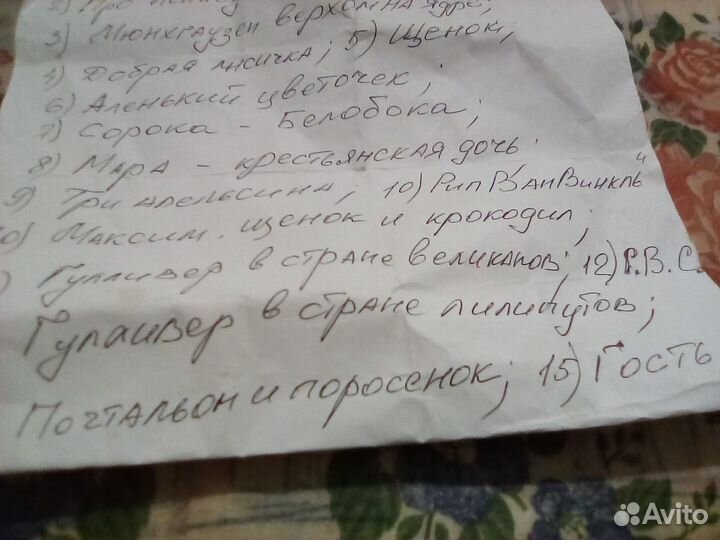 2) Про
3) Мюнхгаузен верхом на ядре;
4) Добрая лисичка; 5) Щенок;
6) Аленький цветочек;
7) Сорока - Белобока;
8) Мара - крестьянская дочь;
9) Три апельсина; 10) Рип Ван Винкль
Максим. щенок и крокодил;
Гулливер в стране великанов; 12) Р.В.С.
Гулливер в стране лилипутов;
Почтальон и поросенок; 15) Гость
Avito